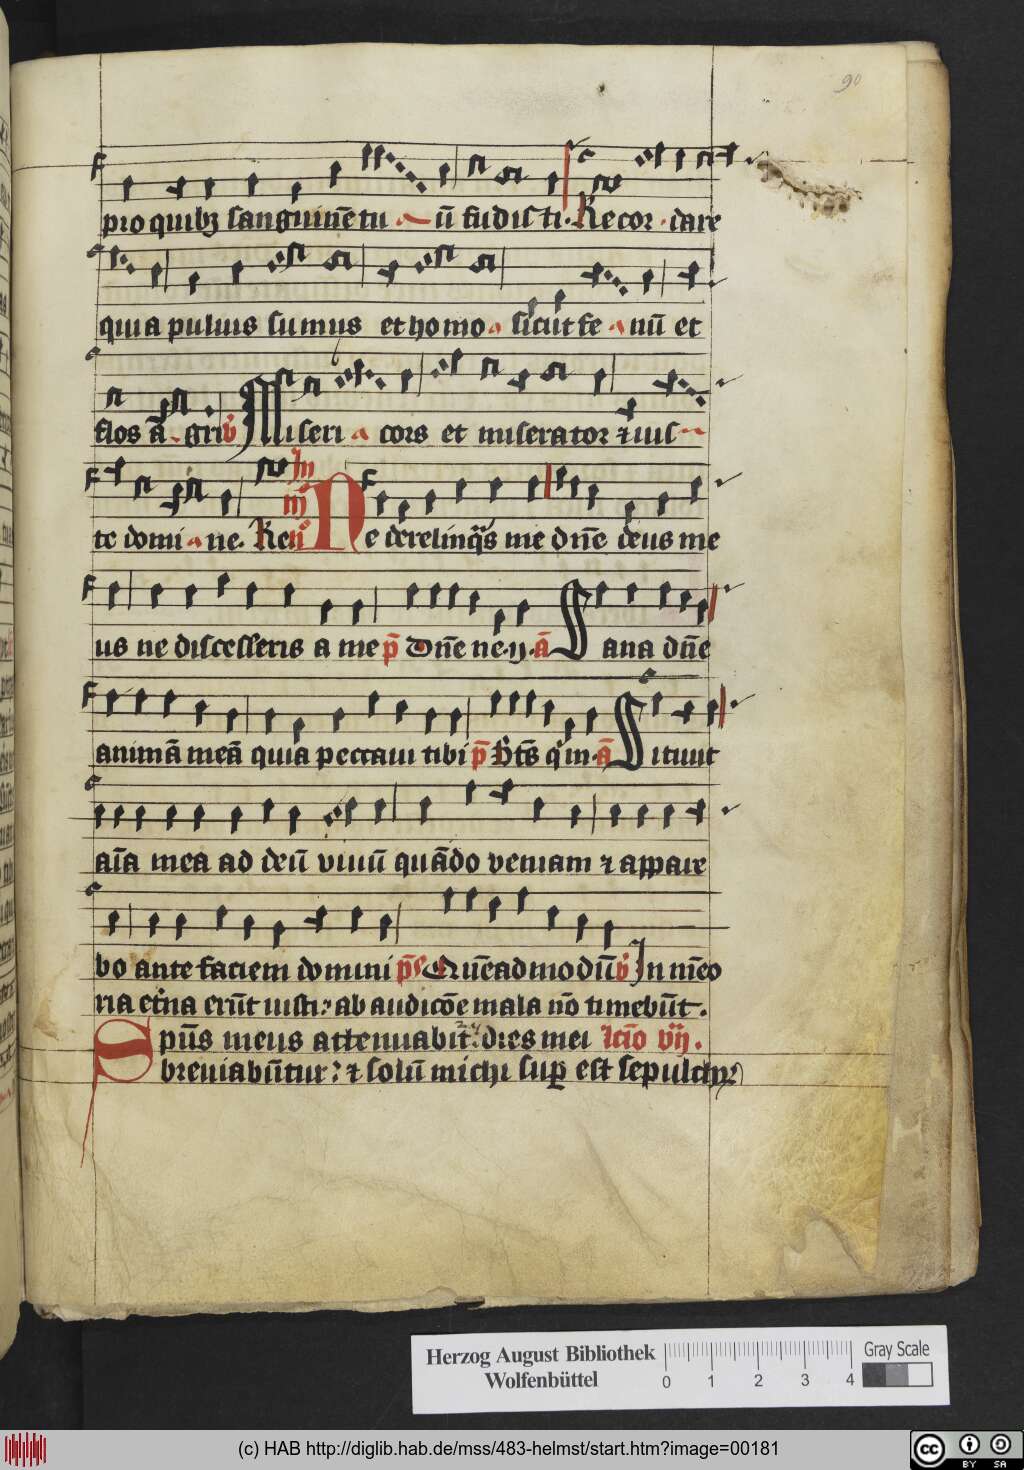 90
pro quibꝫ sanguinē tu a ū fudisti. Recor dare
quia puluis sumus et homo sicut fe nū et
flos ā gri v̓ Miseri a cors et miserator ⁊ iust
te domi ne. Re In iij n̄o Ne derelinqͣs me dn̄e deus me
us ne discesseris a me p̄ Dn̄e ne.ij. ā Sana dn̄e
animā meā quia peccaui tibi p̄ Bt̄s qͥ in. ā Sitiuit
aīa mea ad deū viuū quādo veniam ⁊ appare
bo ante faciem domini p̄s Quēadmodū v̓ In mēo
ria et̓na erūt iusti: ab audicōe mala nō timebūt.
Spūs meus attenuabit̓: dies mei lc̄io vij.
breuiabūtur: ⁊ solū michi sup̱ est sepulchꝝ
Herzog August Bibliothek
Wolfenbüttel
0 1 2 3 4
Gray Scale
(c) HAB http://diglib.hab.de/mss/483-helmst/start.htm?image=00181
cc BY SA